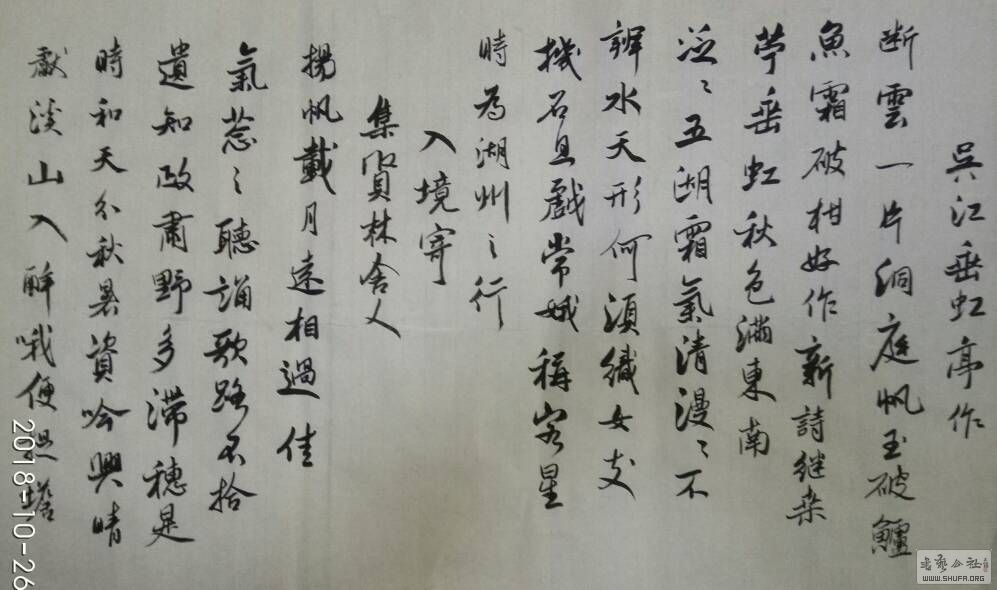 吳江垂虹亭作
断雲一片洞庭帆玉破鱸
魚霜破柑好作新詩継桒
苧垂虹秋色滿東南
泛〻五湖霜氣清漫〻不
辨水天形何須織女支
機石且戲常娥稱客星
時為湖州之行
入境寄
集賢林舍人
揚帆載月遠相過佳
氣忩〻聽誦歌路不拾
遺知政肅野多滯穗是
時和天分秋暑資吟興晴
獻溪山入醉哦便
2018-10-26
WWW.SHUFA.ORG